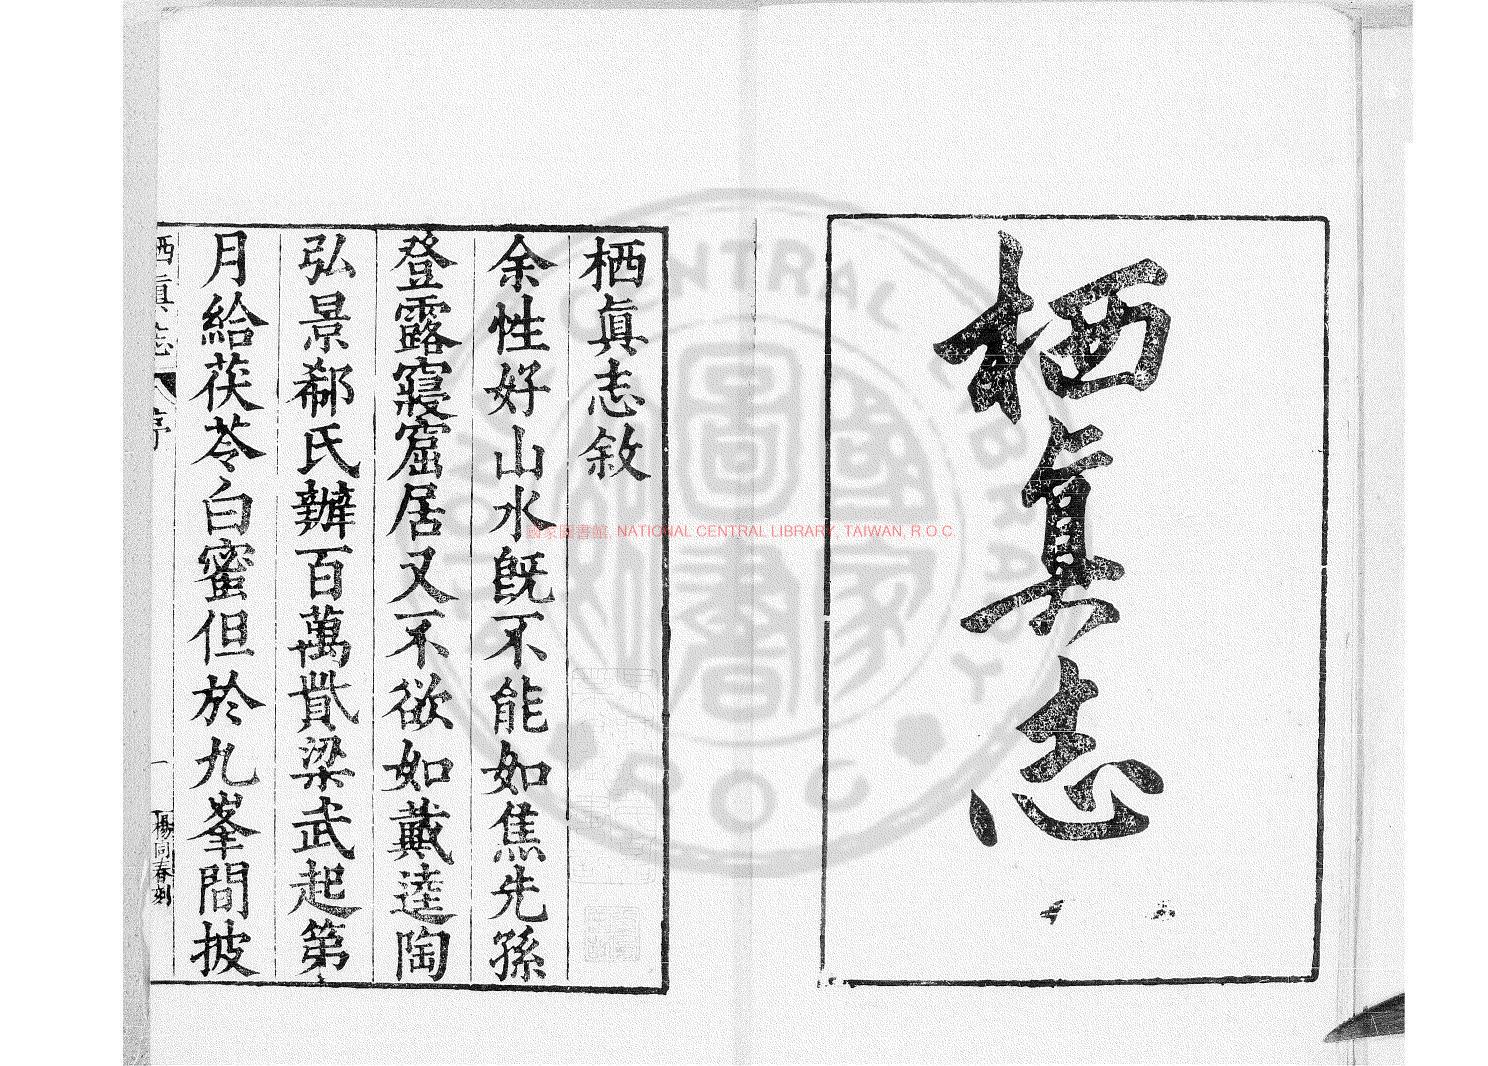 栖眞志
栖眞志敘
余性好山水旣不能如焦先孫
登露寢窟居又不欲如戴逵陶
弘景郗氏辦百萬貲梁武起第
月給茯苓白蜜但於九峯間披
栖眞志
序
一
楊同春刻
國家圖書館, NATIONAL CENTRAL LIBRARY, TAIWAN, R O C.
NATIONAL CENTRAL LIBRARY
R O C
國家圖書